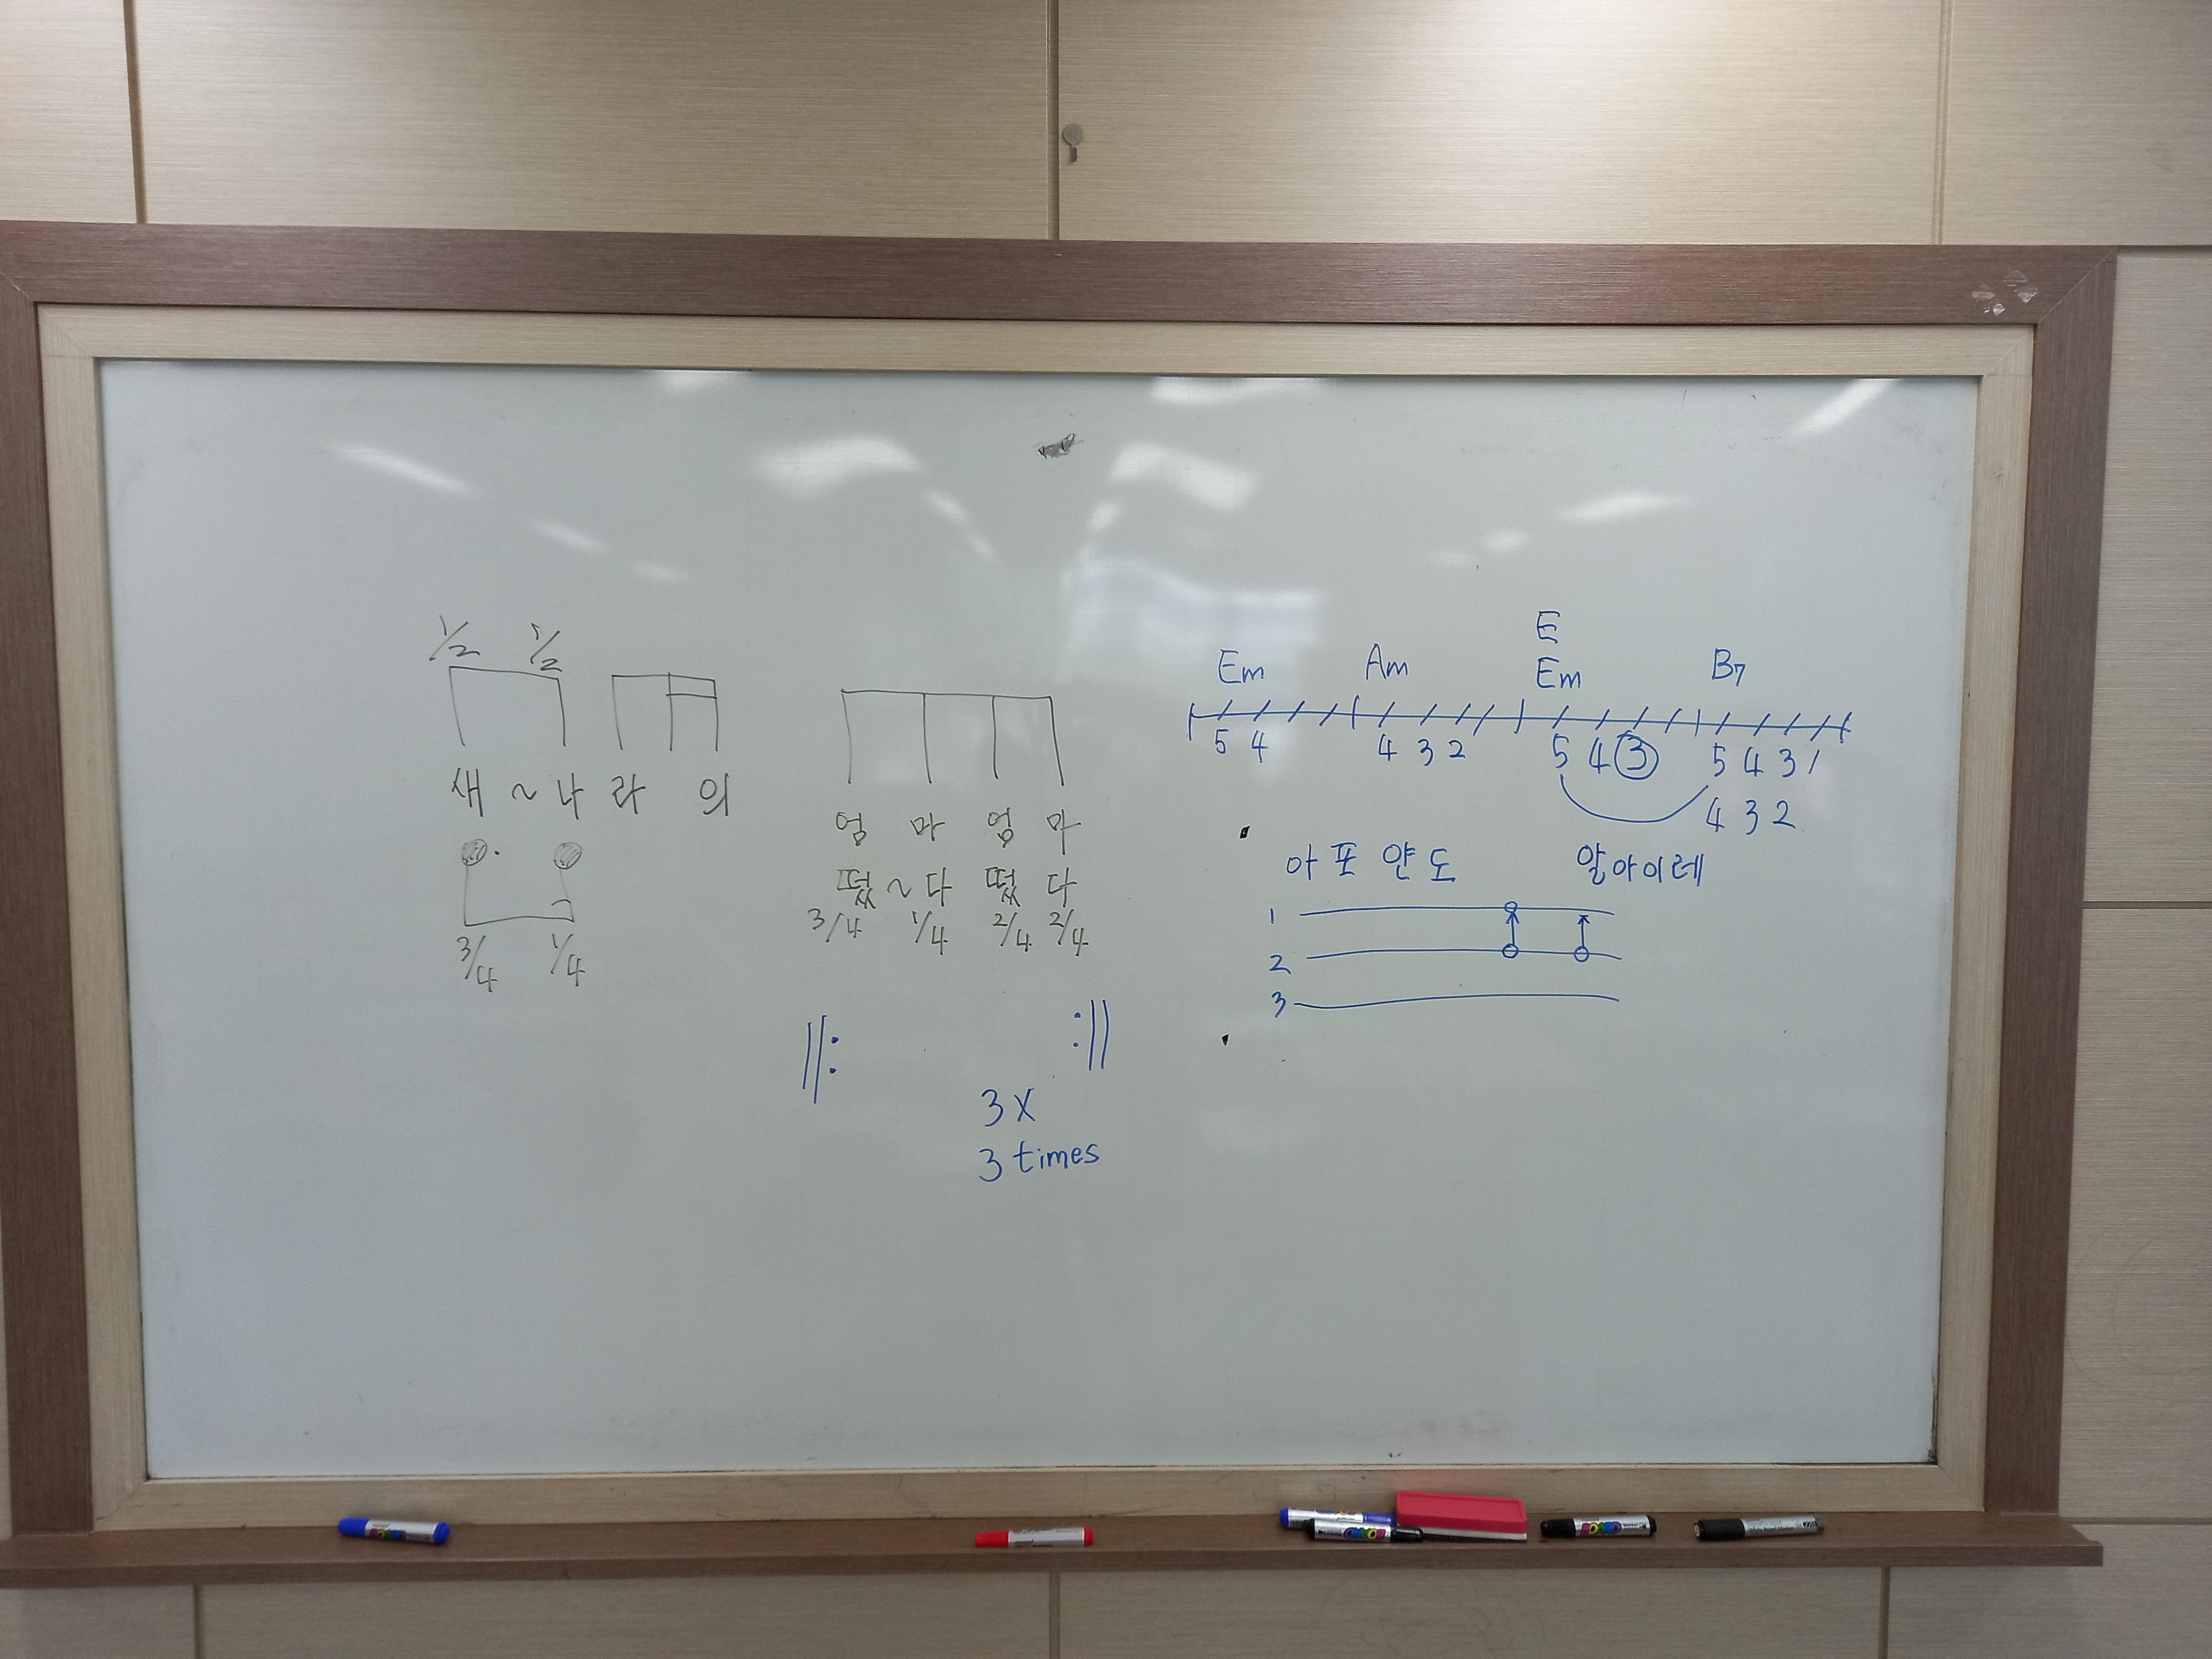 1/2 1/2
새 ~ 나 라 의
3/4 1/4
엄 마 엄 마
떴 ~ 다 떴 다
3/4 1/4 2/4 2/4
3 X
3 times
E
Em Am Em B7
5 4 4 3 2 5 4 3 5 4 3 1
4 3 2
아 포 얀 도 알아이레
1
2
3